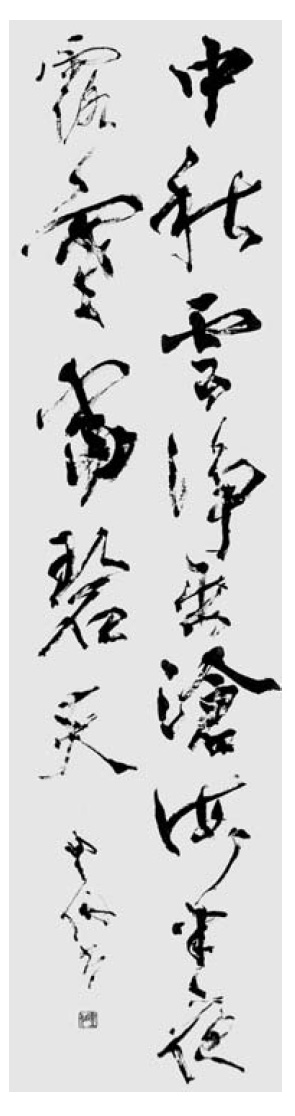 中秋雲淨出滄海半夜
露寒當碧天